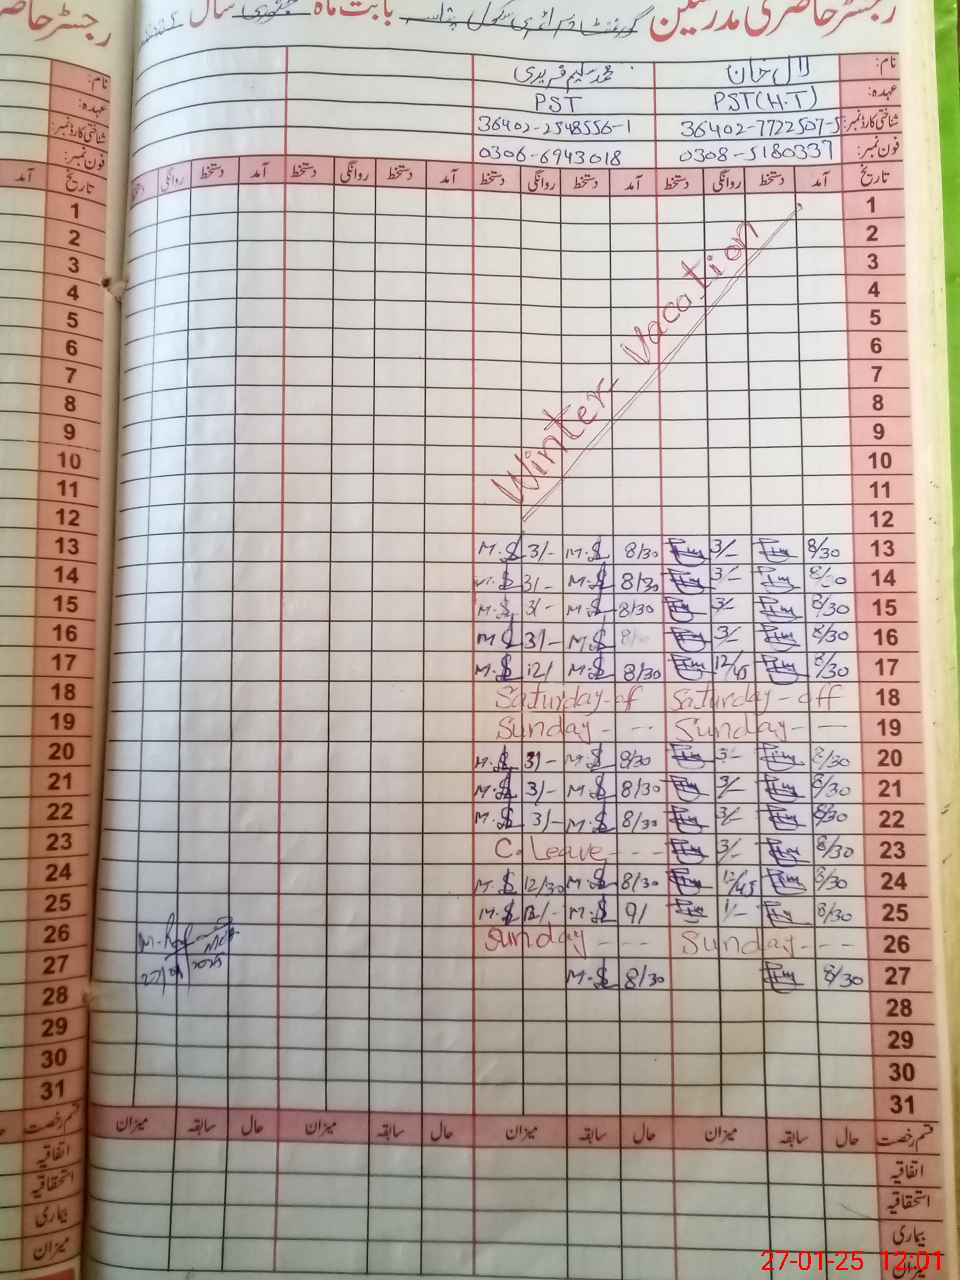 رجسٹر حاضری مدرسین گورنمنٹ پرائمری سکول بابت ماہ جنوری سال
نام: لال خان محمد سلیم فریدی
عہدہ: PST(H.T) PST
شناختی کارڈ نمبر: 36402-7722507-5 36402-2548556-1
فون نمبر: 0308-5180337 0306-6943018
تاریخ آمد دستخط روانگی دستخط آمد دستخط روانگی دستخط آمد دستخط روانگی دستخط آمد دستخط روانگی دستخط
1
2
3
4
5
6
7
8
9
10
11
12
Winter-Vacation
M.S 3/- M.S 8/30 3/- 8/30 13
M.S 3/- M.S 8/30 3/- 8/30 14
M.S 3/- M.S 8/30 3/- 8/30 15
M.S 3/- M.S 8/30 3/- 8/30 16
M.S 12/ M.S 8/30 12/45 8/30 17
Saturday-of Saturday-off 18
Sunday - -- Sunday -- 19
M.S 3/- M.S 8/30 3/- 8/30 20
M.S 3/- M.S 8/30 3/- 8/30 21
M.S 3/- M.S 8/30 3/- 8/30 22
C.Leave - - - 3/- 8/30 23
M.S 12/30 M.S 8/30 12/45 8/30 24
M.S 12/- M.S 9/ 1/- 8/30 25
Sunday - - - Sunday - - - 26
M.S 8/30 8/30 27
28
29
30
31
قسم رخصت حال سابقہ میزان حال سابقہ میزان حال سابقہ میزان حال سابقہ میزان
اتفاقیہ
استحقاقیہ
بیماری
میزان
رجسٹر حاضری
نام:
عہدہ:
شناختی کارڈ نمبر:
فون نمبر:
تاریخ آمد
1
2
3
4
5
6
7
8
9
10
11
12
13
14
15
16
17
18
19
20
21
22
23
24
25
26
27
28
29
30
31
قسم رخصت
اتفاقیہ
استحقاقیہ
بیماری
میزان
27-01-25 12:01